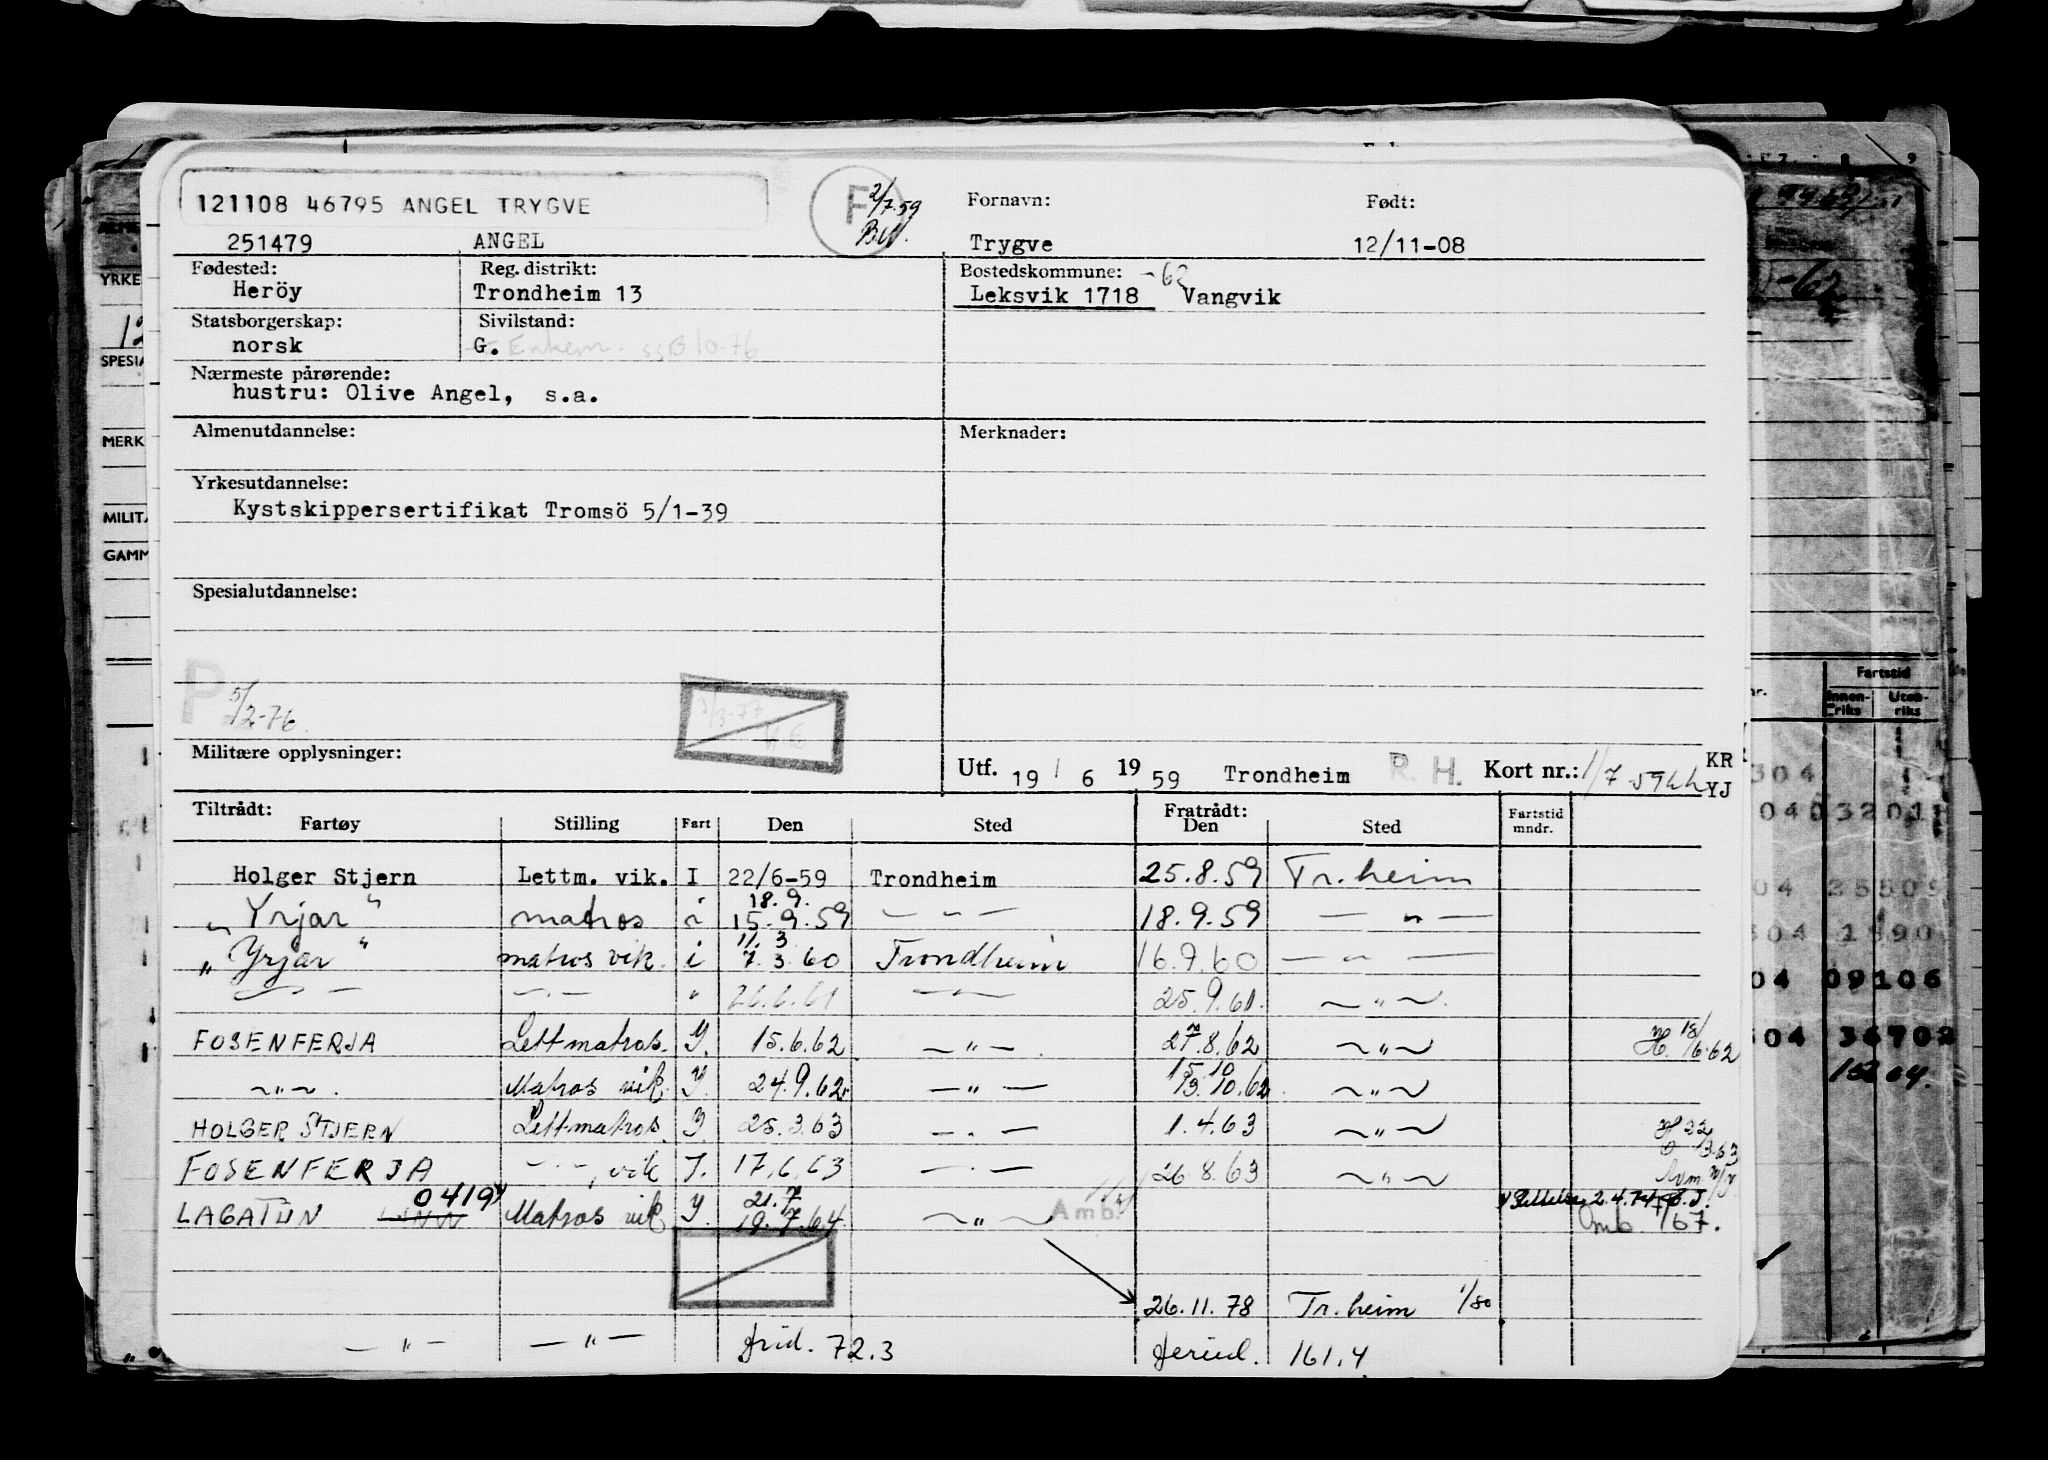 121108 46795 ANGEL TRYGVE
F 2/7.59
Fornavn: Født:
251479 ANGEL Trygve 12/11-08
Fødested: Reg. distrikt: Bostedskommune: -62
Heröy Trondheim 13 Leksvik 1718 Vangvik
Statsborgerskap: Sivilstand:
norsk G. Enkem. 10-76
Nærmeste pårørende:
hustru: Olive Angel, s.a.
Almenutdannelse: Merknader:
Yrkesutdannelse:
Kystskippersertifikat Tromsö 5/1-39
Spesialutdannelse:
P. 5/2-76
Militære opplysninger:
Utf. 19 / 6 19 59 Trondheim R. H. Kort nr.: 1/7 59 KR
YJ
Tiltrådt: Fratrådt:
Fartøy Stilling Fart Den Sted Den Sted Fartstid mndr.
Holger Stjern Lettm. vik. I 22/6-59 Trondheim 25.8.59 Tr.heim
18.9.
"Yrjar" matros i 15.9.59 — " — 18.9.59 — " —
11.3
"Yrjar" matros vik. i 7.3.60 Trondheim 16.9.60 — " —
— " — — " — " 26.6.61 — " — 25.9.61. — " —
FOSENFERJA Lettmatros. Y. 15.6.62 — " — 27.8.62 — " — H. 18/6.62
15.10
— " — Matros vik. Y. 24.9.62 — " — 13.10.62 — " —
HOLGER STJERN Lettmatros. Y. 25.3.63 — " — 1.4.63 — " — 22/3.63
FOSENFERJA — " —, vik Y. 17.6.63 — " — 26.8.63 — " —
0419 21.7
LAGATUN Matros vik Y. 19.7.64 — " — Amb. 2.4.74
Amb. /67.
26.11.78 Tr.heim 1/80
— " — — " — 72.3 161.4
YRKE
SPESIA
MERK
MILITÆ
GAMM
-62
Fartstid
Innenriks Utenriks
304
04 03201
04 25505
304 1890
04 09106
304 36702